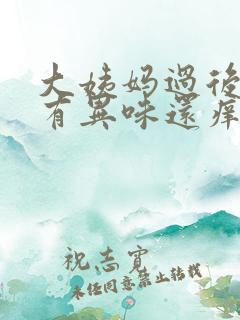 大姨妈過後
有異味還痒
祝志寶
未经同意禁止转载